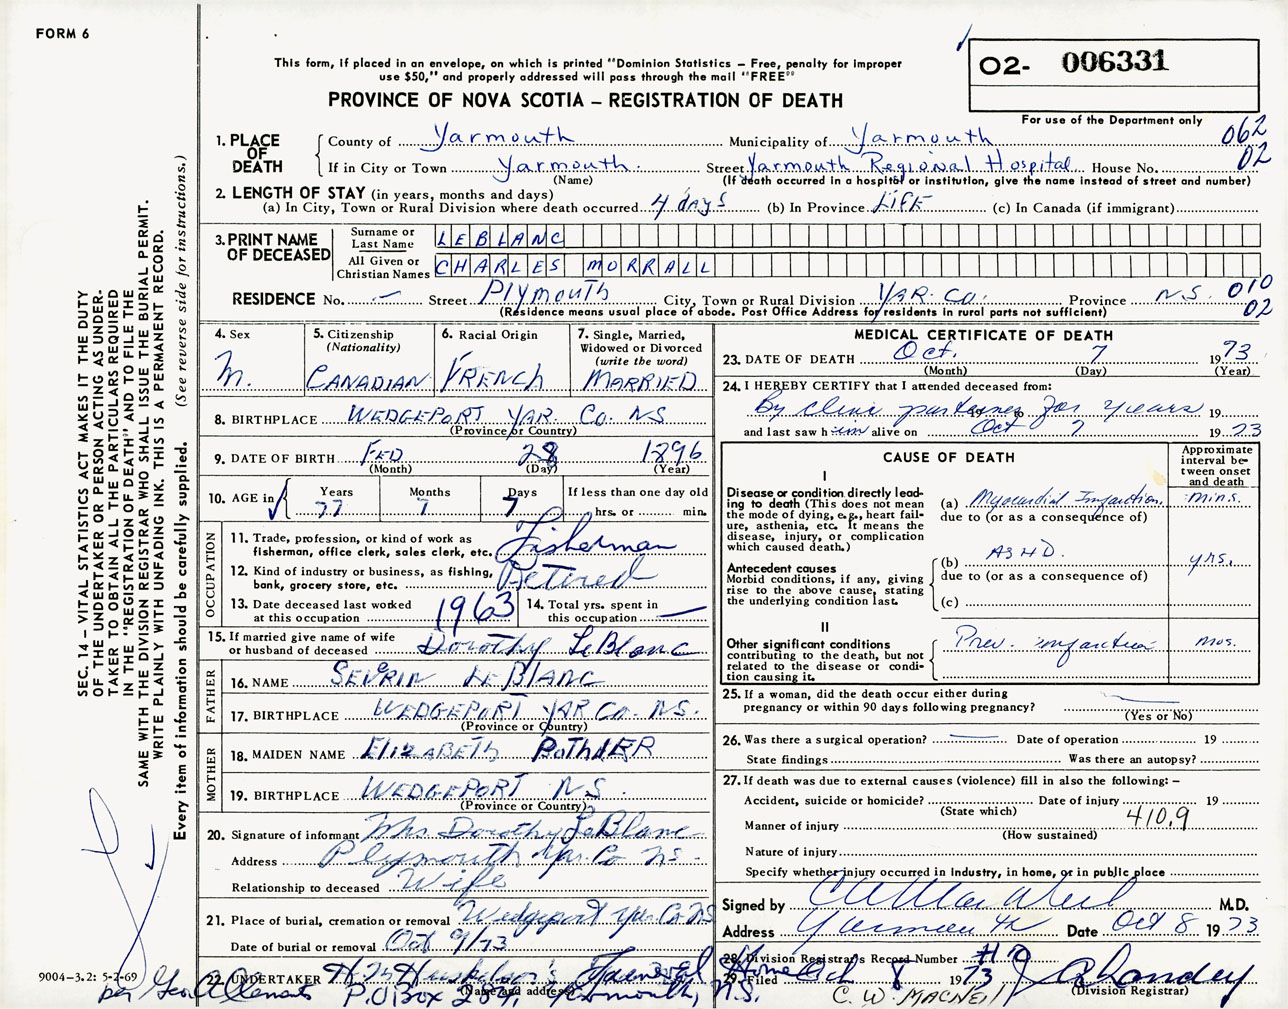 FORM 6
This form, if placed in an envelope, on which is printed "Dominion Statistics – Free, penalty for improper
use $50," and properly addressed will pass through the mail "FREE"
O2- 006331
For use of the Department only
PROVINCE OF NOVA SCOTIA – REGISTRATION OF DEATH
1. PLACE OF DEATH
County of Yarmouth Municipality of Yarmouth 062
If in City or Town Yarmouth Street Yarmouth Regional Hospital House No. 02
(Name) (If death occurred in a hospital or institution, give the name instead of street and number)
2. LENGTH OF STAY (in years, months and days)
(a) In City, Town or Rural Division where death occurred 4 days (b) In Province LIFE (c) In Canada (if immigrant)
3. PRINT NAME OF DECEASED
Surname or Last Name LEBLANC
All Given or Christian Names CHARLES MORRALL
RESIDENCE No. — Street Plymouth City, Town or Rural Division YAR. CO. Province N.S. 010
(Residence means usual place of abode. Post Office Address for residents in rural parts not sufficient) 02
4. Sex M.
5. Citizenship (Nationality) CANADIAN
6. Racial Origin FRENCH
7. Single, Married, Widowed or Divorced (write the word) MARRIED
8. BIRTHPLACE WEDGEPORT YAR. CO. NS
(Province or Country)
9. DATE OF BIRTH FEB 28 1896
(Month) (Day) (Year)
10. AGE in Years 77 Months 7 Days 7 If less than one day old hrs. or min.
OCCUPATION
11. Trade, profession, or kind of work as fisherman, office clerk, sales clerk, etc. Fisherman
12. Kind of industry or business, as fishing, bank, grocery store, etc. Retired
13. Date deceased last worked at this occupation 1963 14. Total yrs. spent in this occupation —
15. If married give name of wife or husband of deceased Dorothy LeBlanc
FATHER
16. NAME SEVERIN LEBLANC
17. BIRTHPLACE WEDGEPORT YAR CO. NS.
(Province or Country)
MOTHER
18. MAIDEN NAME ELIZABETH POTHIER
19. BIRTHPLACE WEDGEPORT N S.
(Province or Country)
20. Signature of informant Mrs Dorothy LeBlanc
Address Plymouth Yar. Co NS.
Relationship to deceased Wife
21. Place of burial, cremation or removal Wedgeport Yar. Co NS
Date of burial or removal Oct 9/73
22. UNDERTAKER Funeral Home
(Name and address) P.O Box Yarmouth, N.S.
MEDICAL CERTIFICATE OF DEATH
23. DATE OF DEATH Oct. 7 1973
(Month) (Day) (Year)
24. I HEREBY CERTIFY that I attended deceased from:
By clinic partners for years 19
and last saw him alive on Oct 7 1973
CAUSE OF DEATH
Approximate interval between onset and death
I
Disease or condition directly leading to death (This does not mean the mode of dying, e.g., heart failure, asthenia, etc. It means the disease, injury, or complication which caused death.)
(a) Myocardial Infarction mins.
due to (or as a consequence of)
Antecedent causes
Morbid conditions, if any, giving rise to the above cause, stating the underlying condition last.
(b) ASHD. yrs.
due to (or as a consequence of)
(c)
II
Other significant conditions
contributing to the death, but not related to the disease or condition causing it.
Prev. infarction mos.
25. If a woman, did the death occur either during pregnancy or within 90 days following pregnancy? —
(Yes or No)
26. Was there a surgical operation? — Date of operation 19
State findings Was there an autopsy?
27. If death was due to external causes (violence) fill in also the following: –
Accident, suicide or homicide? Date of injury 19
(State which)
Manner of injury 410.9
(How sustained)
Nature of injury
Specify whether injury occurred in industry, in home, or in public place
Signed by M.D.
Address Yarmouth Date Oct 8 1973
28. Division Registrar's Record Number
29. Filed Oct 8 1973
C. W. MACNEILL (Division Registrar)
SEC. 14 – VITAL STATISTICS ACT MAKES IT THE DUTY
OF THE UNDERTAKER OR PERSON ACTING AS UNDER-
TAKER TO OBTAIN ALL THE PARTICULARS REQUIRED
IN THE "REGISTRATION OF DEATH" AND TO FILE THE
SAME WITH THE DIVISION REGISTRAR WHO SHALL ISSUE THE BURIAL PERMIT.
WRITE PLAINLY WITH UNFADING INK. THIS IS A PERMANENT RECORD.
Every item of information should be carefully supplied. (See reverse side for instructions.)
9004-3.2: 5-2-69
per